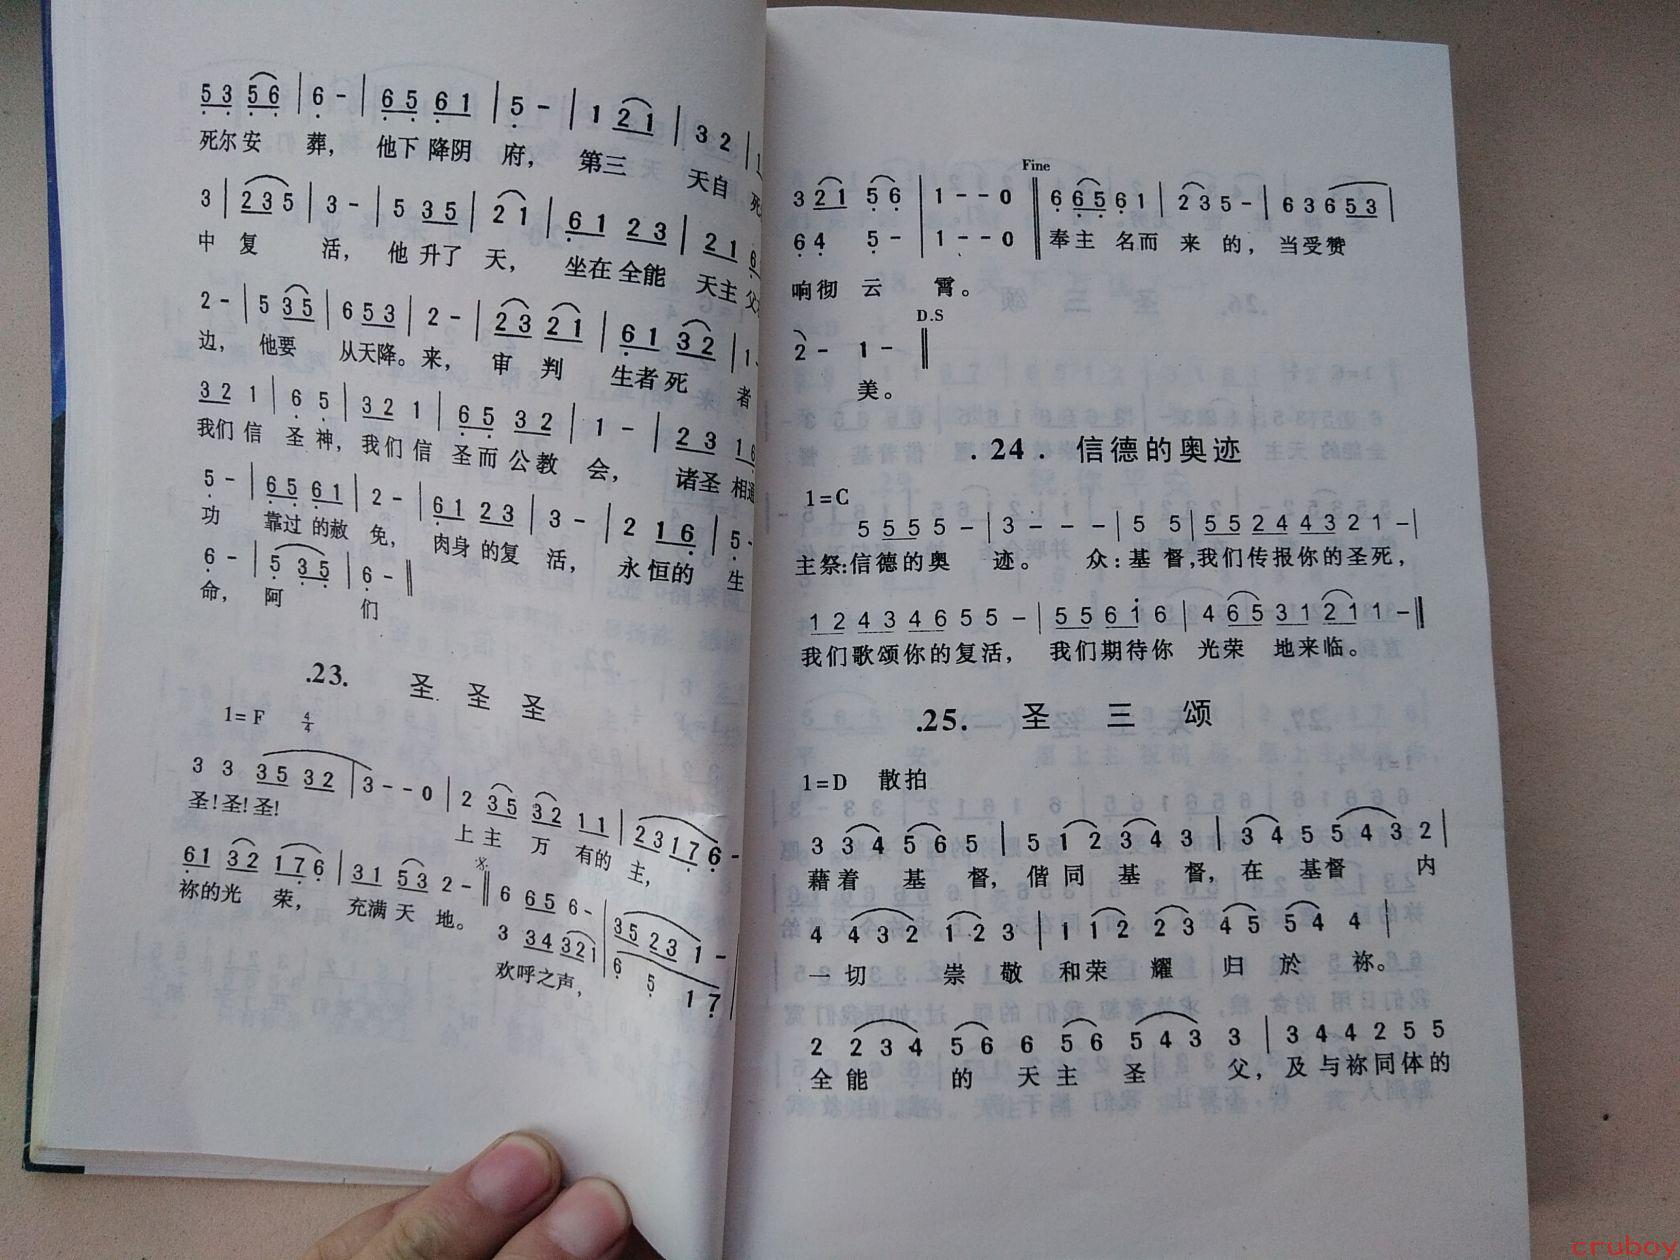 5 3 5 6 | 6 - | 6 5 6 1 | 5 - | 1 2 1 | 3 2 |
死尔安 葬， 他下 降阴 府， 第三 天自 死
3 | 2 3 5 | 3 - | 5 3 5 | 2 1 | 6 1 2 3 | 2 1
中 复 活， 他 升了 天， 坐在 全能 天主 父
2 - | 5 3 5 | 6 5 3 | 2 - | 2 3 2 1 | 6 1 3 2 | 1
边， 他要 从天降。来， 审 判 生者 死 者
3 2 1 | 6 5 | 3 2 1 | 6 5 3 2 | 1 - | 2 3 1 6
我们 信 圣 神， 我们 信 圣而 公教 会， 诸圣 相通
5 - | 6 5 6 1 | 2 - | 6 1 2 3 | 3 - | 2 1 6 | 5 -
功 靠过 的赦 免， 肉身 的复 活， 永 恒的 生
6 - | 5 3 5 | 6 - ‖
命， 阿 们
.23. 圣 圣 圣
1=F 4/4
3 3 3 5 3 2 | 3 - - 0 | 2 3 5 3 2 1 1 | 2 3 1 7 6 -
圣！圣！圣！ 上 主 万 有的 主，
6 1 3 2 1 7 6 | 3 1 5 3 2 - ‖ 6 6 5 6 - | 3 5 2 3 1 -
3 3 4 3 2 1 | 6 5 1 7
祢的光 荣， 充满 天 地。 欢呼之声，
Fine
3 2 1 5 6 | 1 - - 0 ‖ 6 6 5 6 1 | 2 3 5 - | 6 3 6 5 3 |
6 4 5 - | 1 - - 0 ‖ 奉主 名而 来 的， 当受赞
响彻 云 霄。
D.S
2 - 1 - ‖
美。
.24. 信德的奥迹
1=C
5 5 5 5 5 - | 3 - - - | 5 5 | 5 5 2 4 4 3 2 1 - |
主祭:信德的奥 迹。 众：基 督,我们传报你的圣死，
1 2 4 3 4 6 5 5 - | 5 5 6 1 6 | 4 6 5 3 1 2 1 1 - ‖
我们歌颂你的复活， 我们期待你 光荣 地来临。
.25. 圣 三 颂
1=D 散拍
3 3 4 5 6 5 | 5 1 2 3 4 3 | 3 4 5 5 4 3 2 |
藉着 基 督， 偕同 基 督， 在 基督 内
4 4 3 2 1 2 3 | 1 1 2 2 3 4 5 5 4 4 |
一切 崇 敬 和荣 耀 归 於 祢。
2 2 3 4 5 6 6 5 6 5 4 3 3 | 3 4 4 2 5 5
全能 的 天主 圣 父， 及与祢同体的
cruboy